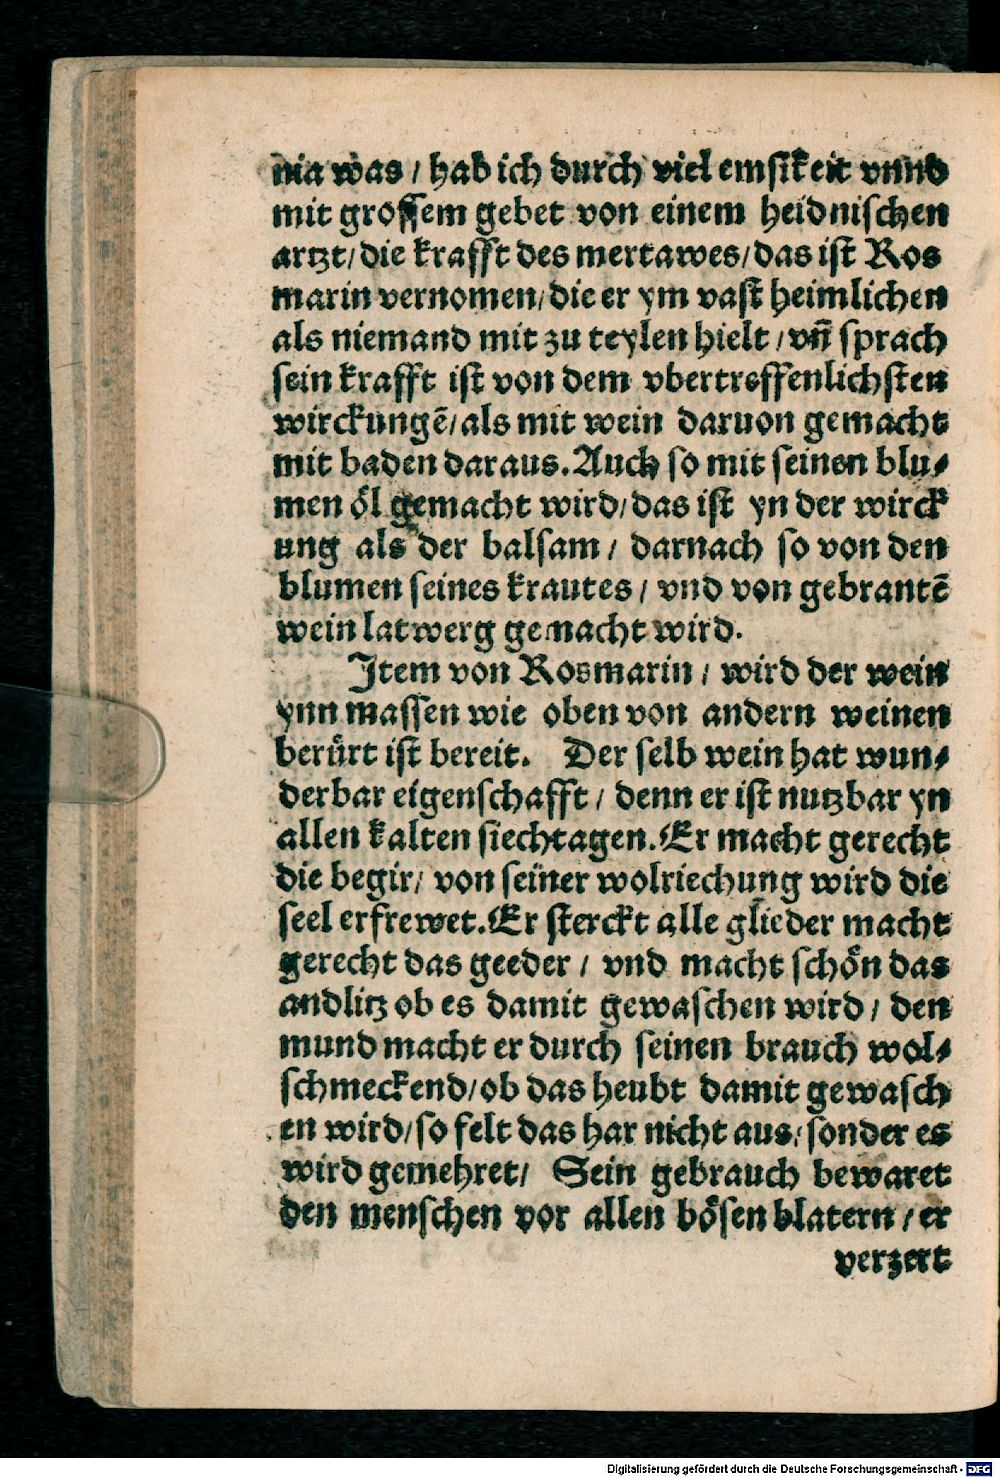 nia was / hab ich durch viel emsikeit vnnd
mit grossem gebet von einem heidnischen
artzt / die krafft des mertawes / das ist Ros
marin vernomen / die er ym vast heimlichen
als niemand mit zu teylen hielt / vñ sprach
sein krafft ist von dem vbertreffenlichsten
wirckungē / als mit wein daruon gemacht
mit baden daraus. Auch so mit seinen blu⸗
men öl gemacht wird / das ist yn der wirck
ung als der balsam / darnach so von den
blumen seines krautes / vnd von gebrantē
wein latwerg gemacht wird.
Item von Rosmarin / wird der wein
ynn massen wie oben von andern weinen
berürt ist bereit. Der selb wein hat wun⸗
derbar eigenschafft / denn er ist nutzbar yn
allen kalten siechtagen. Er macht gerecht
die begir / von seiner wolriechung wird die
seel erfrewet. Er sterckt alle glieder macht
gerecht das geeder / vnd macht schön das
andlitz ob es damit gewaschen wird / den
mund macht er durch seinen brauch wol⸗
schmeckend / ob das heubt damit gewasch
en wird / so felt das har nicht aus / sonder es
wird gemehret / Sein gebrauch bewaret
den menschen vor allen bösen blatern / er
verzert
Digitalisierung gefördert durch die Deutsche Forschungsgemeinschaft - DFG